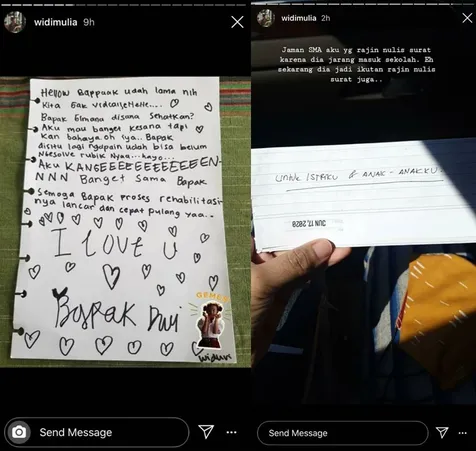 widimulia 9h
Hellow Bappuak udah lama nih
kita gak vidcallelhelle....
Bapak Gimana disana sehatkan?
Aku mau banget kesana tapi
kan bahaya oh iya.. Bapak
disitu lagi ngapain udah bisa belum
nyesolve rubik nyaa...hayo...
AKU KANGEEEEEEEEEEEEN-
NNN Banget sama Bapak
Semoga Bapak proses rehabilitasi-
nya lancar dan cepat pulang yaa..
I love U
Bapak Dwi
GEMES
widuri
Send Message
widimulia 2h
Jaman SMA aku yg rajin nulis surat
karena dia jarang masuk sekolah. Eh
sekarang dia jadi ikutan rajin nulis
surat juga..
UNTUK ISTRIKU & ANAK-ANAKKU
JUN 17, 2020
Send Message